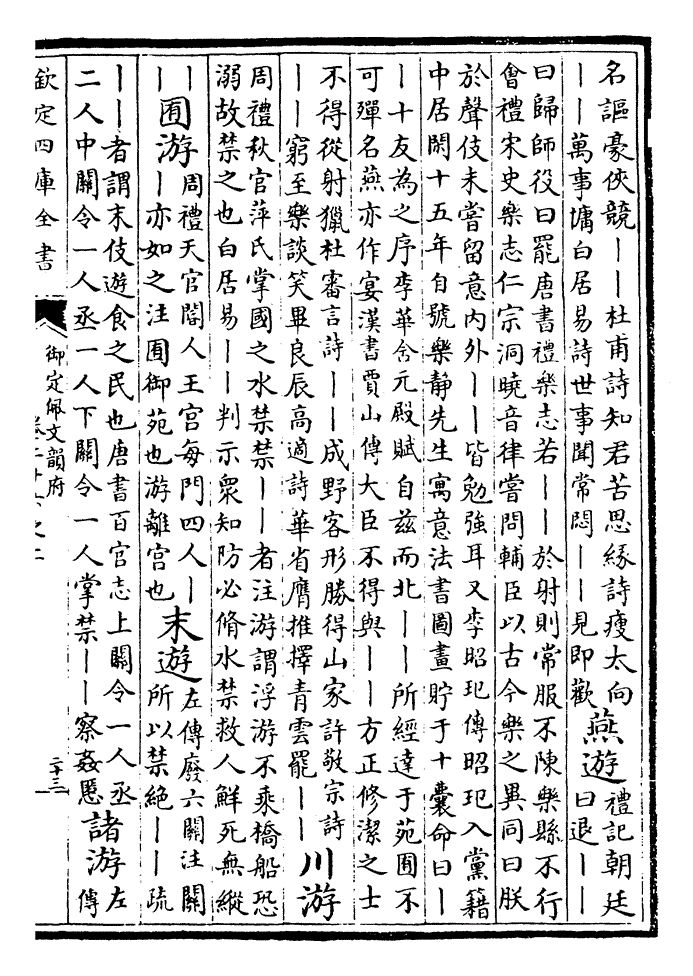 名謳豪俠競丨丨杜甫詩知君苦思緣詩瘦太向
丨丨萬事墉白居易詩世事聞常悶丨丨見即歡
燕遊
禮記朝廷
曰退丨丨
曰歸師役曰罷唐書禮樂志若丨丨於射則常服不陳樂縣不行
會禮宋史樂志仁宗洞曉音律嘗問輔臣以古今樂之異同曰朕
於聲伎未嘗留意内外丨丨皆勉強耳又李昭玘傳昭玘入黨籍
中居閑十五年自號樂靜先生寓意法書圖畫貯于十囊命曰丨
丨十友為之序李華含元殿賦自兹而北丨丨所經達于苑囿不
可殫名燕亦作宴漢書賈山傳大臣不得與丨丨方正修潔之士
不得從射獵杜審言詩丨丨成野客形勝得山家許敬宗詩
丨丨窮至樂談笑畢良辰高適詩華省膺推擇青雲罷丨丨
川游
周禮秋官萍氏掌國之水禁禁丨丨者注游謂浮游不乘橋船恐
溺故禁之也白居易丨丨判示衆知防必脩水禁救人鮮死無縱
丨
丨
囿游
周禮天官閽人王宫每門四人丨
丨亦如之注囿御苑也游離宫也
末遊
左傳廢六關注關
所以禁絶丨丨疏
丨丨者謂末伎遊食之民也唐書百官志上關令一人丞
二人中關令一人丞一人下關令一人掌禁丨丨察姦慝
諸游
左
傳
欽定四庫全書
御定佩文韻府
二十三